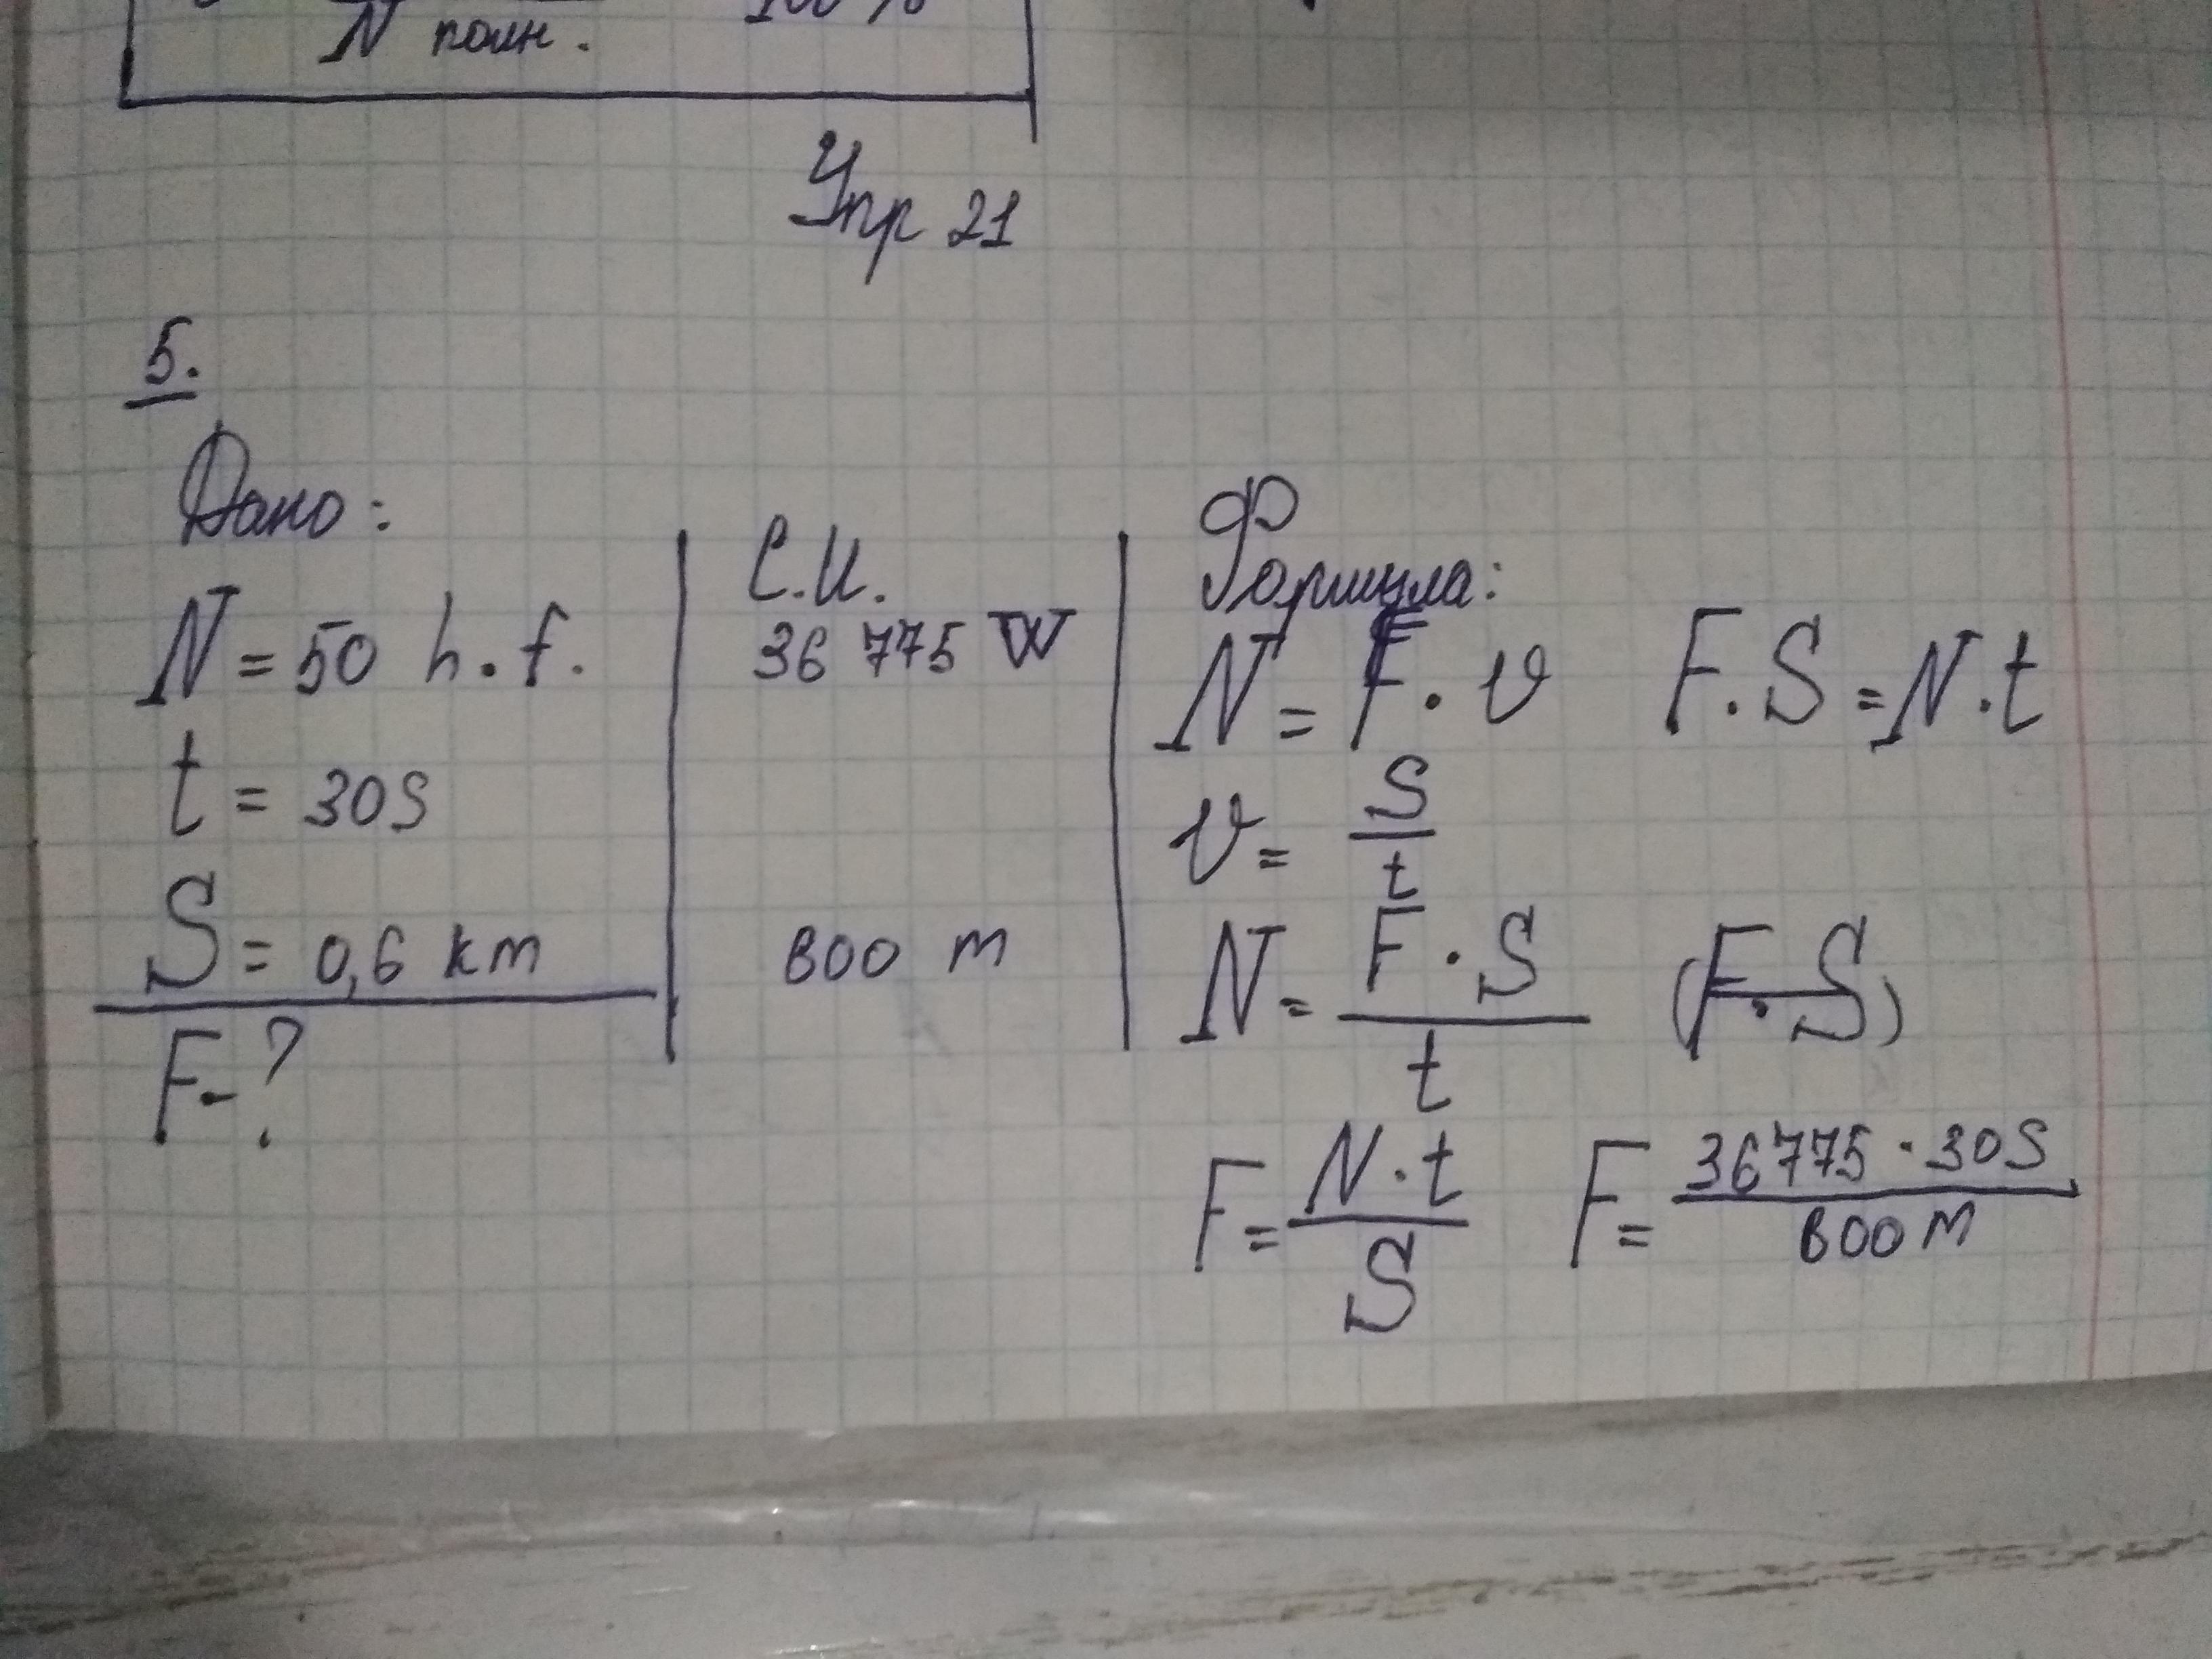 N полн. 100%
Упр 21
5.
Дано:
N = 50 h.f.
t = 30s
S = 0,6 km
F - ?
С.И.
36 775 W
600 m
Формула:
N = F · v F · S = N · t
v = S/t
N = F · S / t (F · S)
F = N · t / S F = 36775 · 30s / 600 m